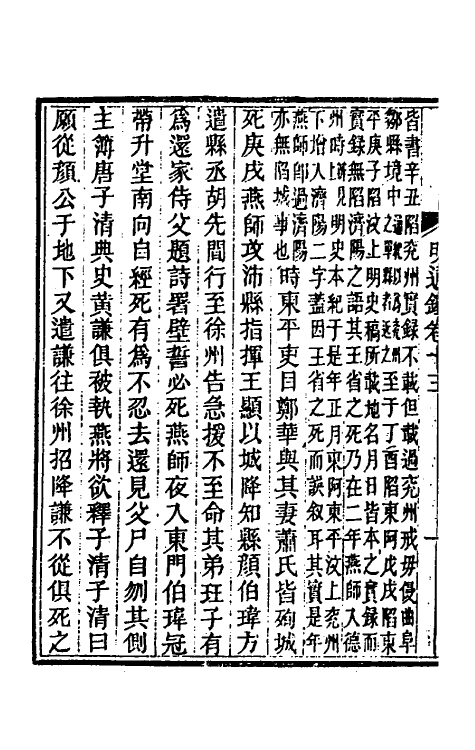 明通鑑卷十三
皆書辛丑陷兗州實錄不載但載過兗州戒毋侵曲阜
鄒縣境中之至于丁酉陷東阿戊戌陷東
平庚子陷汶上明史稿所載地名月日皆本之實錄而
實錄無陷濟陽之語其王省之死乃在二年燕師入德
州時見明史本紀于是年正月東阿東平汶上兗州
下增入濟陽二字蓋因王省之死而誤敘耳其實是年
燕師即過濟陽
亦無陷城事也
時東平吏目鄭華與其妻蕭氏皆殉城
死庚戌燕師攻沛縣指揮王顯以城降知縣顏伯瑋方
遣縣丞胡先間行至徐州告急援不至命其弟班子有
爲還家侍父題詩署壁誓必死燕師夜入東門伯瑋冠
帶升堂南向自經死有爲不忍去還見父尸自刎其側
主簿唐子清典史黃謙俱被執燕將欲釋子清子清曰
願從顏公于地下又遣謙往徐州招降謙不從俱死之